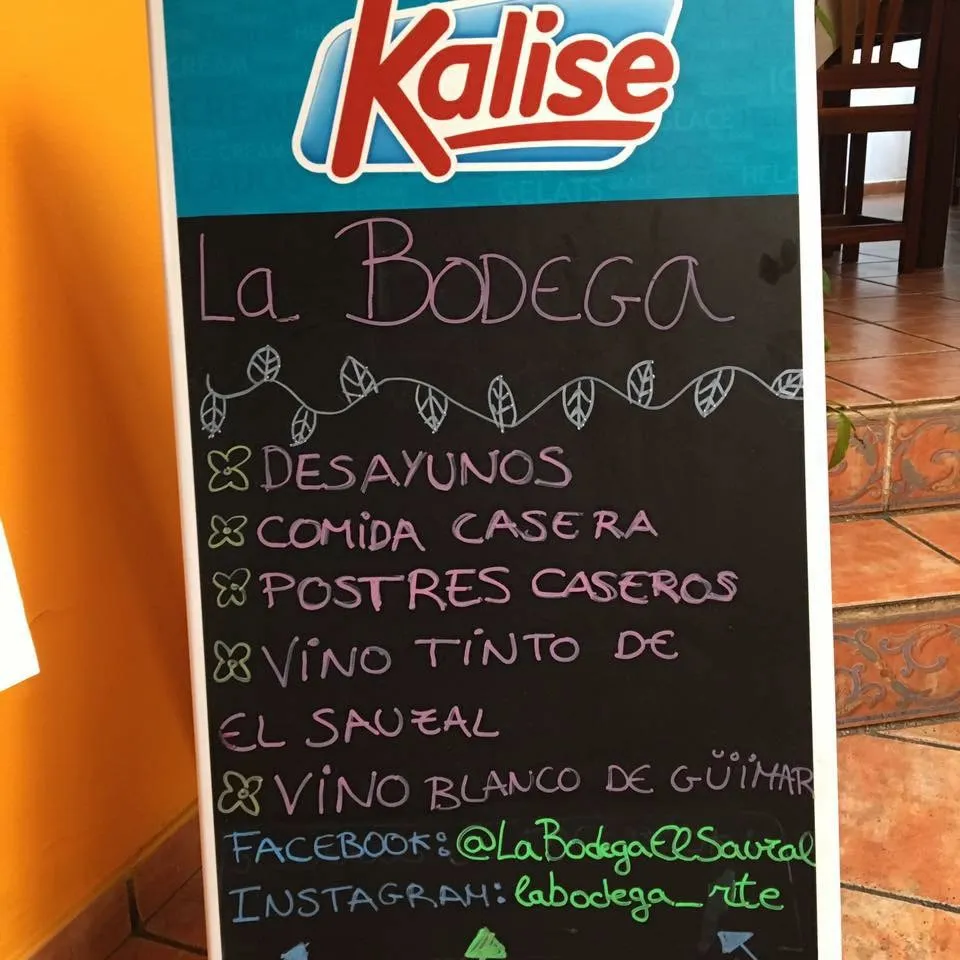 Kalise
La BODEGa
DESAYUNOS
COMiDA CASERA
POSTRES CASEROS
ViNO TiNTO DE
EL SAUZAL
ViNO BLANCO DE GÜiMAR
FACEBOOK: @LaBodegaElSauzal
INSTAGRAM: labodega_rte